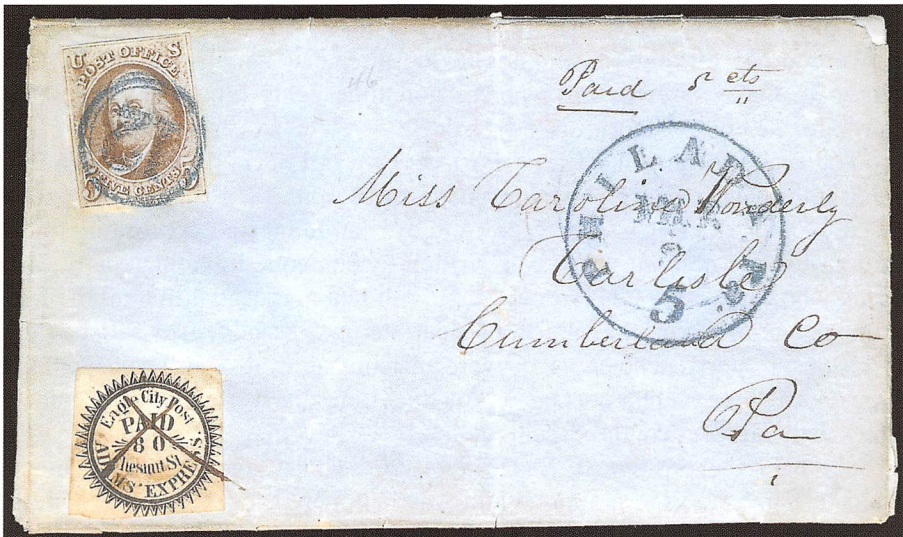 U S
POST OFFICE
FIVE CENTS
5
46
Paid 5 cts
PHILADA Pa.
MAR
5
Miss Caroline Wonderly
Carlisle
Cumberland Co
Pa
Eagle City Post
PAID
80
Chesnut St
ADAMS' EXPRESS.